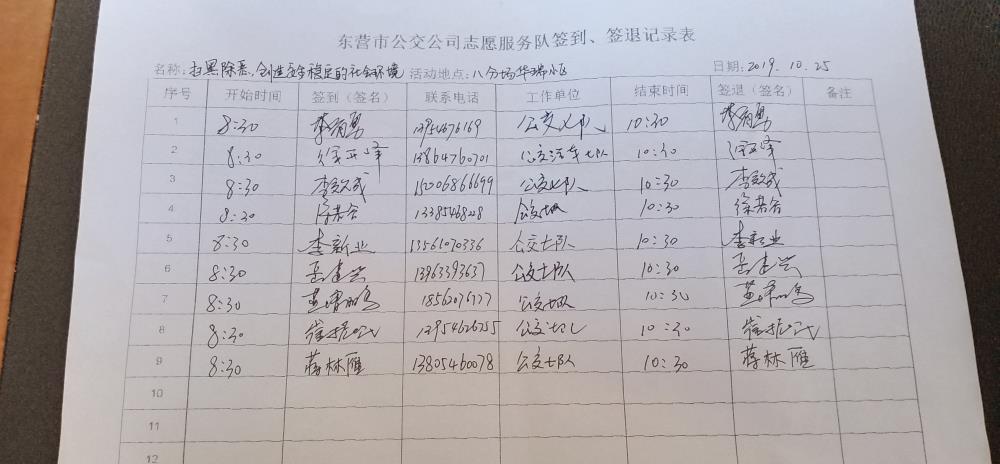 东营市公交公司志愿服务队签到、签退记录表
名称:扫黑除恶,创造安全稳定的社会环境 活动地点:八分场华瑞小区 日期:2019.10.25
序号 开始时间 签到（签名） 联系电话 工作单位 结束时间 签退（签名） 备注
1 8:30 李有勇 13954676169 公交七队 10:30 李有勇
2 8:30 徐亚峰 13864760701 公交汽车七队 10:30 徐亚峰
3 8:30 李效成 15006866699 公交七队 10:30 李效成
4 8:30 徐若谷 13385468228 公交七队 10:30 徐若谷
5 8:30 李新业 13561070336 公交七队 10:30 李新业
6 8:30 岳建兴 13963393637 公交七队 10:30 岳建兴
7 8:30 公交七队 10:30
8 8:30 崔振 13954626255 公交七队 10:30 崔振
9 8:30 蒋林雁 13805460078 公交七队 10:30 蒋林雁
10
11
12